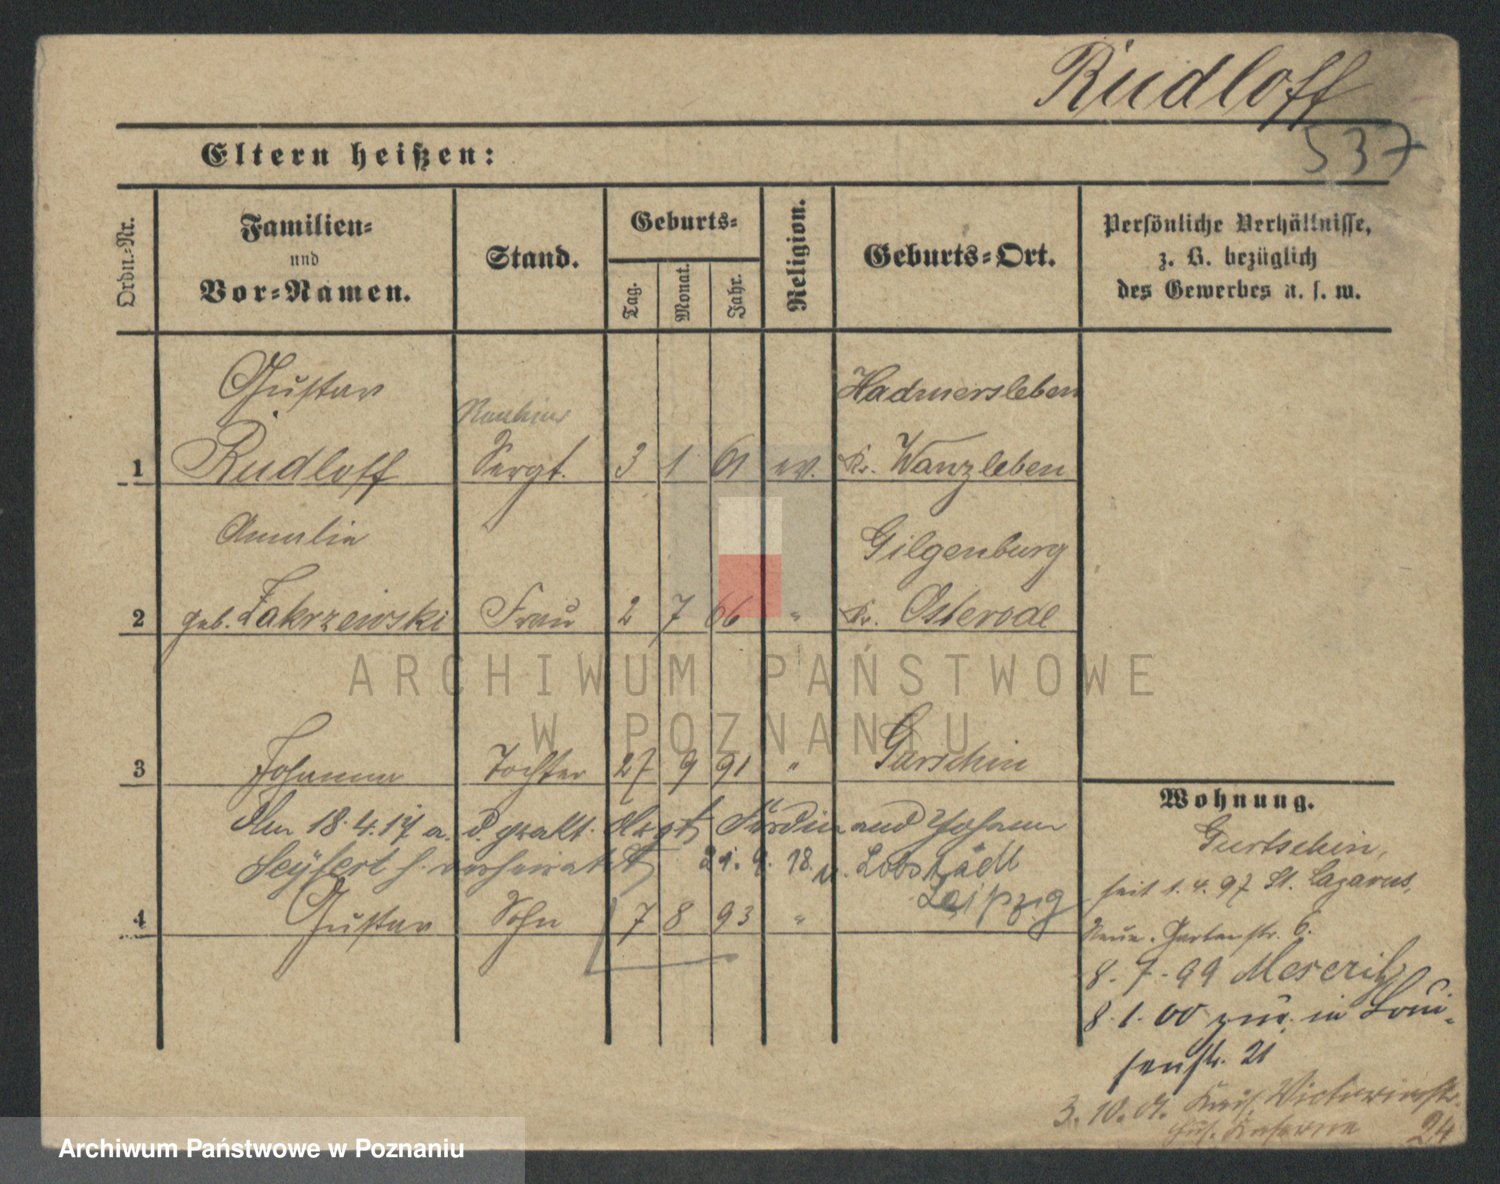 Rudloff
537
Eltern heißen:
Ordn.-Nr.
Familien-
und
Vor-Namen.
Stand.
Geburts-
Tag.
Monat.
Jahr.
Religion.
Geburts-Ort.
Persönliche Verhältnisse,
z. B. bezüglich
des Gewerbes u. s. w.
Gustav
Hadmersleben
1 Rudloff Sergt. 3 1 61 ev. Kr. Wanzleben
Amalie
Gilgenburg
2 geb. Zakrzewski Frau 2 7 66 " Kr. Osterode
ARCHIWUM PAŃSTWOWE
W POZNANIU
3 Johanna Tochter 27 9 91 " Gurschin
Den 18.4.17 a. d. prakt. Ferdinand Johann
Seyfert h. verheiratet 21.9.18. n. Lobstädt
Leipzig
4 Gustav Sohn 7 8 93 "
Wohnung.
Gurtschin,
seit 1.4.97 St. Lazarus,
Neue Gartenstr. 6.
8.7.99 Meseritz
8.1.00 zur. in Loui-
senstr. 21
3.10.01. Victoriastr.
Kaserne 24
Archiwum Państwowe w Poznaniu